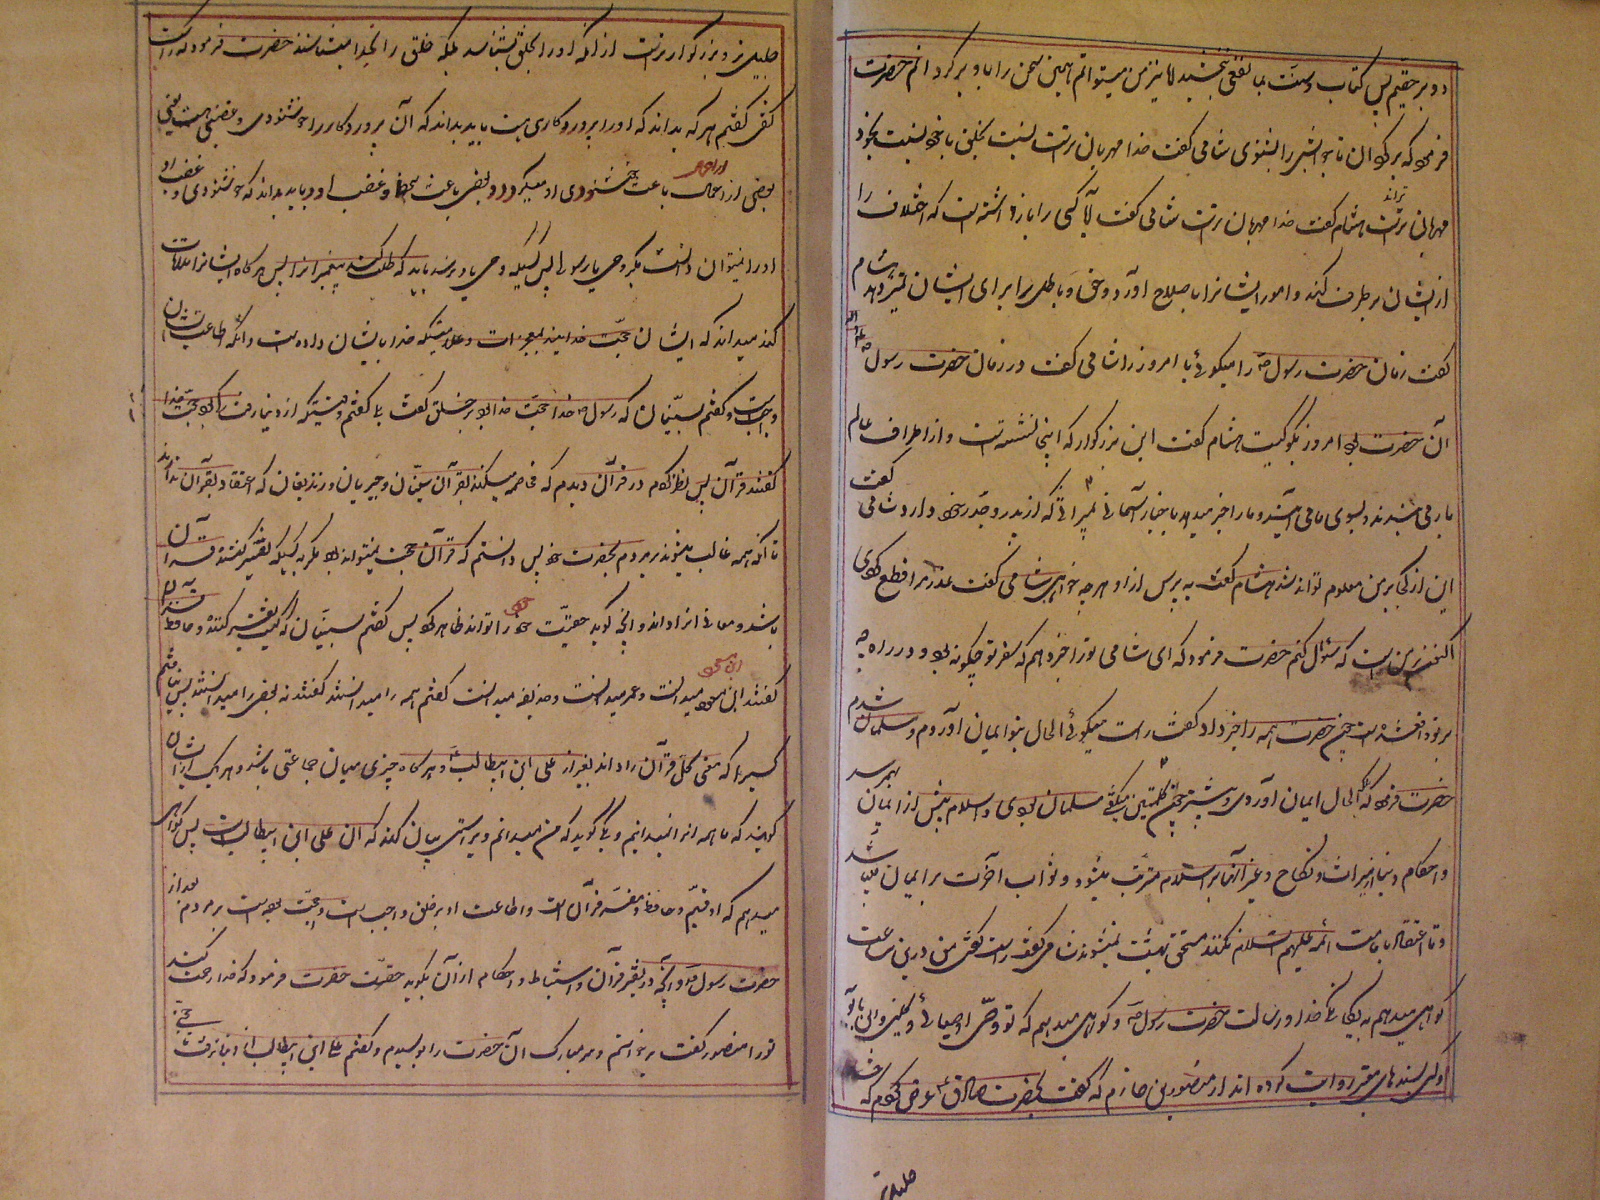 دو بر حقیم پس کتاب و سنت بما نفعی نبخشید لا نیز من میتوانم همین سخن را باو بر گردانم حضرت
فرمود که بر گردان تا جوابش را بشنوی شامی گفت خدا مهربان تر است نسبت بخلق یا خود نسبت بخود
مهربان تراند هشام گفت خدا مهربان تر است شامی گفت آیا کسی را باز داشته است که اختلاف را
از ایشان بر طرف کند و امور ایشانرا باصلاح آورد و حق و باطل را برای ایشان تمیز دهد هشام
گفت زمان حضرت رسول را میگوئی یا امروز را شامی گفت در زمان حضرت رسول
آن حضرت بود امروز بگو کیست هشام گفت این بزرگوار که اینجا نشسته است و از اطراف عالم
بار می بندند و بسوی ما می آیند و ما را خبر میدهد باخبار آسمانی بمیراثی که از پدر و جد خود دارد شامی گفت
این از کجا بر من معلوم تواند شد هشام گفت به پرس از او هر چه خواهی شامی گفت عذر مرا قطع کردی
اکنون بر من است که سؤال کنم حضرت فرمود که ای شامی تو را خبر دهم که سفر تو چگونه بود و در راه چه
بر تو واقع شده است چون حضرت همه را خبر داد گفت راست میگوئی الحال بتو ایمان آوردم و مسلمان شدم
حضرت فرمود که الحال ایمان آوردی و پیشتر چون کلمتین میگفتی مسلمان بودی و اسلام پیش از ایمان بهم میرسد
و احکام دنیا از میراث و نکاح و غیر آنها بر اسلام مترتب میشود و ثواب آخرت بر ایمان میباشد
و تا اعتقاد بامامت ائمه علیهم السلام نکنند مستحق بهشت نمیشوند شامی گفت راست گفتی من درین ساعت
گواهی میدهم به یگانگی خدا و رسالت حضرت رسول و گواهی میدهم که تو وصی اوصیائی و کلینی و ابن بابویه
و کشی بسندهای معتبر روایت کرده اند از منصور بن حازم که گفت بحضرت صادق عرض کردم که خدا
جلیل تر و بزرگوارتر است از آنکه او را بخلق بشناسند بلکه خلق را بخدا میشناسند حضرت فرمود که راست
گفتی گفتم هر که بداند که او را پروردگاری هست باید بداند که آن پروردگار را خوشنودی و غضبی هست یعنی
بعضی از اعمال باعث خوشنودی او میگردد و بعضی باعث سخط و غضب او و باید بداند که خوشنودی و غضب او
او را نمیتوان دانست مگر بوحی یا رسولی پس کسیکه وحی باو نرسد باید که طلب کند پیغمبرانرا پس هر گاه ایشانرا ملاقات
کند میداند که ایشان حجت خدایند بمعجزات و علامتیکه خدا بایشان داده است و آنکه اطاعت ایشان
واجب است و گفتم بسنیان که رسول خدا حجت خدا بود بر خلق گفتند بلی گفتم وقتیکه از دنیا رفت که بود حجت خدا
گفتند قرآن پس نظر کردم در قرآن دیدم که مخاصمه میکنند بقرآن سنیان و جبریان و زندیقان که اعتقاد بقرآن ندارند
تا آنکه همه غالب میشوند بر مردم بحجت خود پس دانستم که قرآن حجت نمیتواند بود مگر به کسیکه تفسیر کننده قرآن
باشد و معانی آنرا داند و آنچه گوید حقیت خود را تواند ظاهر کرد پس گفتم بسنیان که کیست تفسیر کننده و حافظ قرآن
گفتند ابن مسعود میدانست و عمر میدانست و حذیفه میدانست گفتم همه را میدانستند گفتند نه بعضی را میدانستند پس نیافتم
کسیرا که معنی کل قرآن را داند بغیر از علی ابن ابیطالب و هر گاه چیزی میان جماعتی باشد و هر یک از ایشان
گویند که ما همه آنرا نمیدانیم و یکی گوید که من میدانم و براستی بیان کند که آن علی ابن ابیطالبست پس گواهی
میدهم که او قیم و حافظ و مفسر قرآن است و اطاعت او بر خلق واجب است و حجت بوده است بر مردم بعد از
حضرت رسول و آنچه در تفسیر قرآن و استنباط احکام از آن بگوید حقست حضرت فرمود که خدا رحمت کند
تو را منصور گفت برخواستم و سر مبارک آن حضرت را بوسیدم و گفتم علی ابن ابیطالب از دنیا نرفت تا حجتی